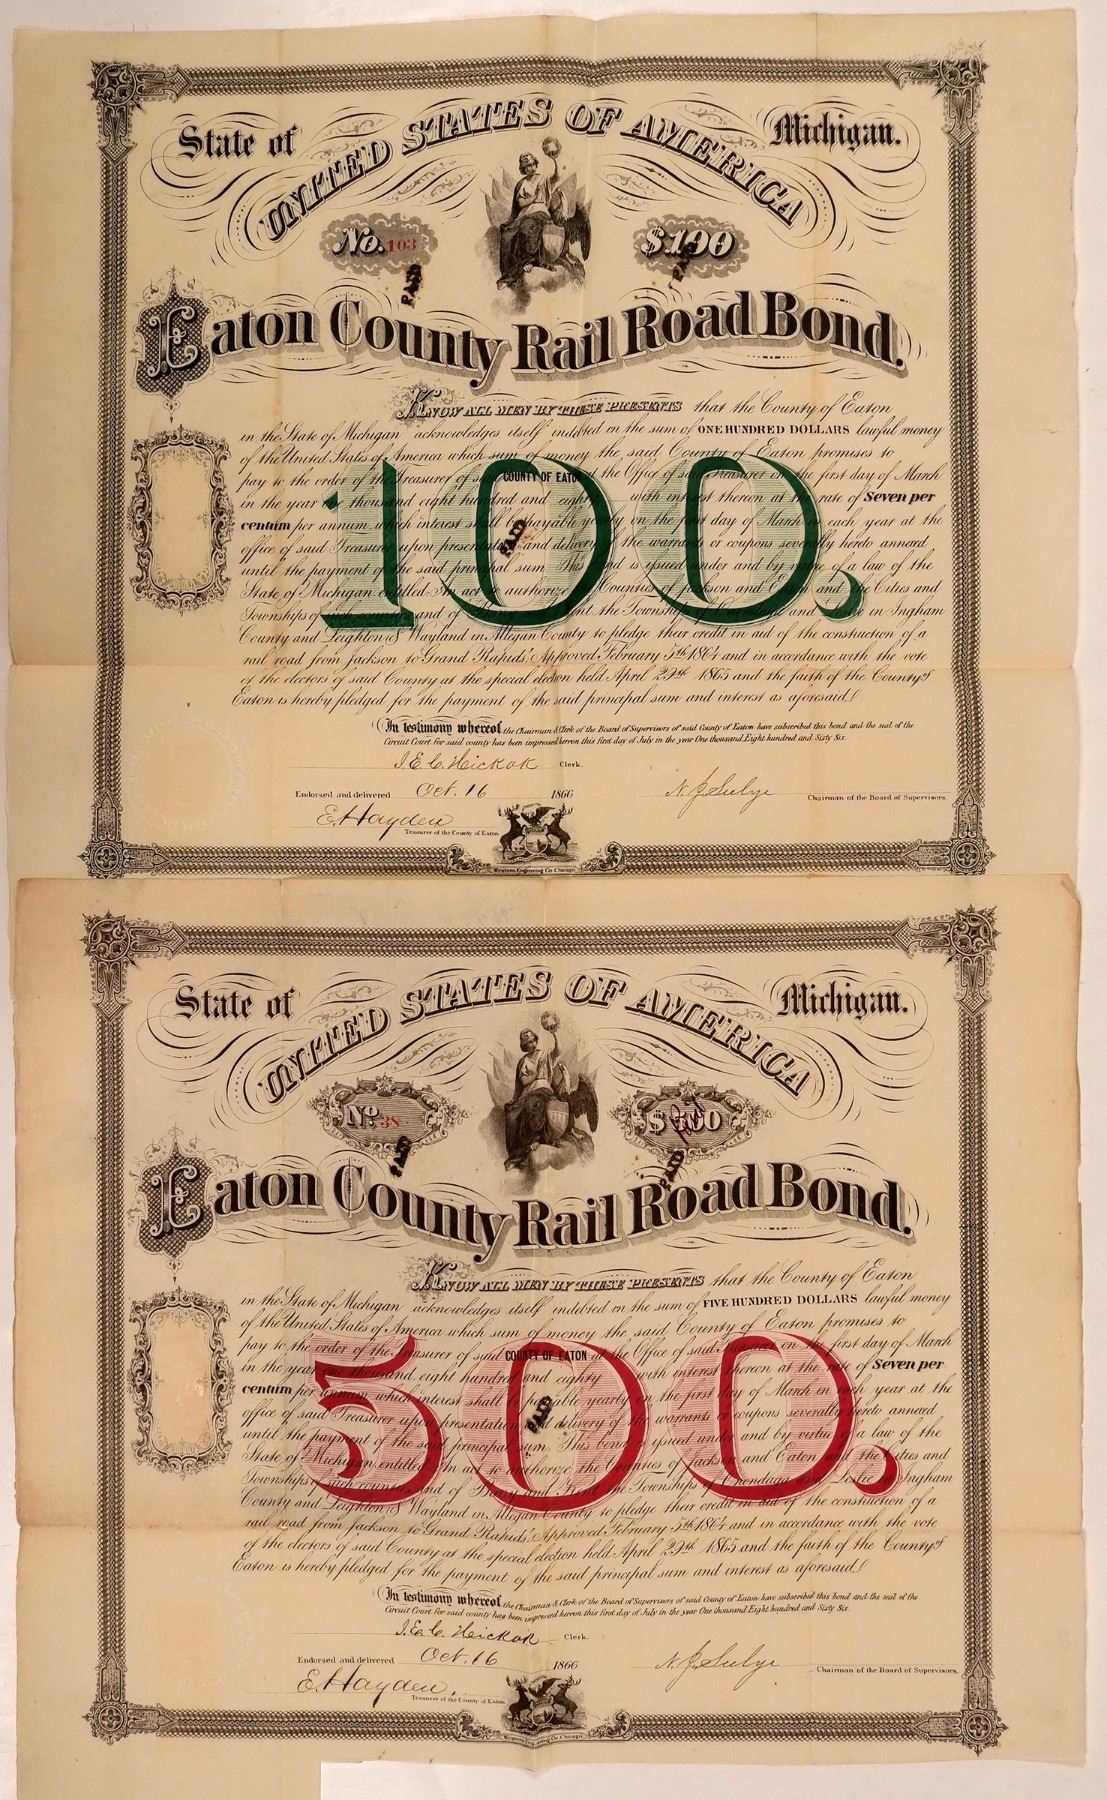 State of
UNITED STATES OF AMERICA
Michigan.
No. 103
$100
PAID
PAID
Eaton County Rail Road Bond.
KNOW ALL MEN BY THESE PRESENTS that the County of Eaton
in the State of Michigan acknowledges itself indebted on the sum of ONE HUNDRED DOLLARS lawful money
of the United States of America which sum of money the said County of Eaton promises to
pay to the order of the Treasurer of said COUNTY OF EATON at the Office of said Treasurer on the first day of March
in the year one thousand eight hundred and eighty with interest thereon at the rate of Seven per
centum per annum which interest shall be payable yearly on the first day of March in each year at the
office of said Treasurer upon presentation and delivery of the warrants or coupons severally hereto annexed
until the payment of the said principal sum. This bond is issued under and by virtue of a law of the
State of Michigan entitled. An act to authorize the Counties of Jackson and Eaton and the Cities and
Townships of and of the Townships of and in Ingham
County and Leighton & Wayland in Allegan County to pledge their credit in aid of the construction of a
rail road from Jackson to Grand Rapids; Approved February 5th 1864 and in accordance with the vote
of the electors of said County at the special election held April 29th 1865 and the faith of the County of
Eaton is hereby pledged for the payment of the said principal sum and interest as aforesaid.
100.
PAID
In testimony whereof the Chairman & Clerk of the Board of Supervisors of said County of Eaton have subscribed this bond and the seal of the
Circuit Court for said county has been impressed hereon this first day of July in the year One thousand Eight hundred and Sixty Six.
I. E. C. Hickok Clerk.
Endorsed and delivered Oct. 16 1866
Chairman of the Board of Supervisors.
E. Hayden
Treasurer of the County of Eaton
Western Engraving Co. Chicago
State of
UNITED STATES OF AMERICA
Michigan.
No. 38
$500
Paid
PAID
PAID
Eaton County Rail Road Bond.
KNOW ALL MEN BY THESE PRESENTS that the County of Eaton
in the State of Michigan acknowledges itself indebted on the sum of FIVE HUNDRED DOLLARS lawful money
of the United States of America which sum of money the said County of Eaton promises to
pay to the order of the Treasurer of said COUNTY OF EATON at the Office of said Treasurer on the first day of March
in the year one thousand eight hundred and eighty with interest thereon at the rate of Seven per
centum per annum which interest shall be payable yearly on the first day of March in each year at the
office of said Treasurer upon presentation and delivery of the warrants or coupons severally hereto annexed
until the payment of the said principal sum. This bond is issued under and by virtue of a law of the
State of Michigan entitled. An act to authorize the Counties of Jackson and Eaton and the Cities and
Townships of such counties and of Barry and Kent the Townships of Onondaga and Leslie in Ingham
County and Leighton & Wayland in Allegan County to pledge their credit in aid of the construction of a
rail road from Jackson to Grand Rapids; Approved February 5th 1864 and in accordance with the vote
of the electors of said County at the special election held April 29th 1865 and the faith of the County of
Eaton is hereby pledged for the payment of the said principal sum and interest as aforesaid.
500.
PAID
In testimony whereof the Chairman & Clerk of the Board of Supervisors of said County of Eaton have subscribed this bond and the seal of the
Circuit Court for said county has been impressed hereon this first day of July in the year One thousand Eight hundred and Sixty Six.
I. E. C. Hickok Clerk.
Endorsed and delivered Oct. 16 1866
Chairman of the Board of Supervisors.
E. Hayden
Treasurer of the County of Eaton
Western Engraving Co. Chicago